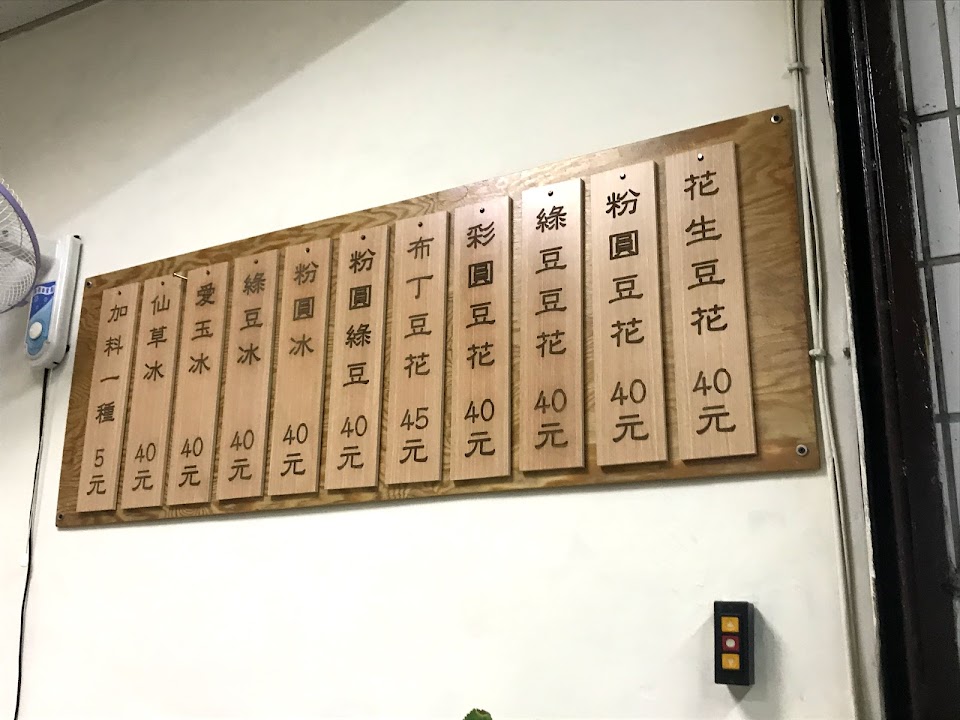 花生豆花 40元
粉圓豆花 40元
綠豆豆花 40元
彩圓豆花 40元
布丁豆花 45元
粉圓綠豆 40元
粉圓冰 40元
綠豆冰 40元
愛玉冰 40元
仙草冰 40元
加料一種 5元